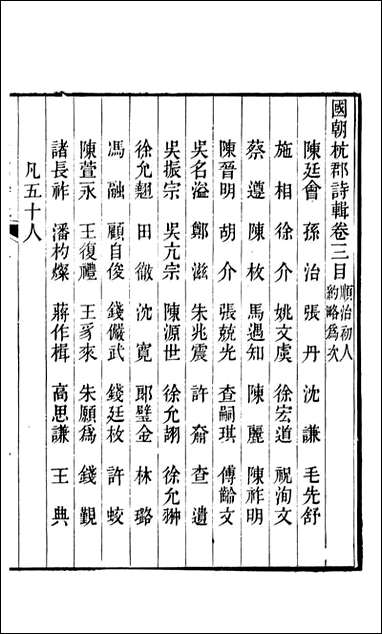 國朝杭郡詩輯卷三目 順治初人約略為次
陳廷會 孫治 張丹 沈謙 毛先舒
施相 徐介 姚文虞 徐宏道 祝洵文
蔡遵 陳枚 馬遇知 陳麗 陳祚明
陳晉明 胡介 張兢光 查嗣琪 傅齡文
吳名溢 鄭滋 朱兆震 許 查遺
吳振宗 吳亢宗 陳源世 徐允翃 徐允翀
徐允翹 田徹 沈寬 耶璧金 林璐
馮融 顧自俊 錢儼武 錢廷枚 許蛟
陳萱永 王復禮 王豸來 朱願為 錢覲
諸長祚 潘杓燦 蔣作楫 高思謙 王典
凡五十人